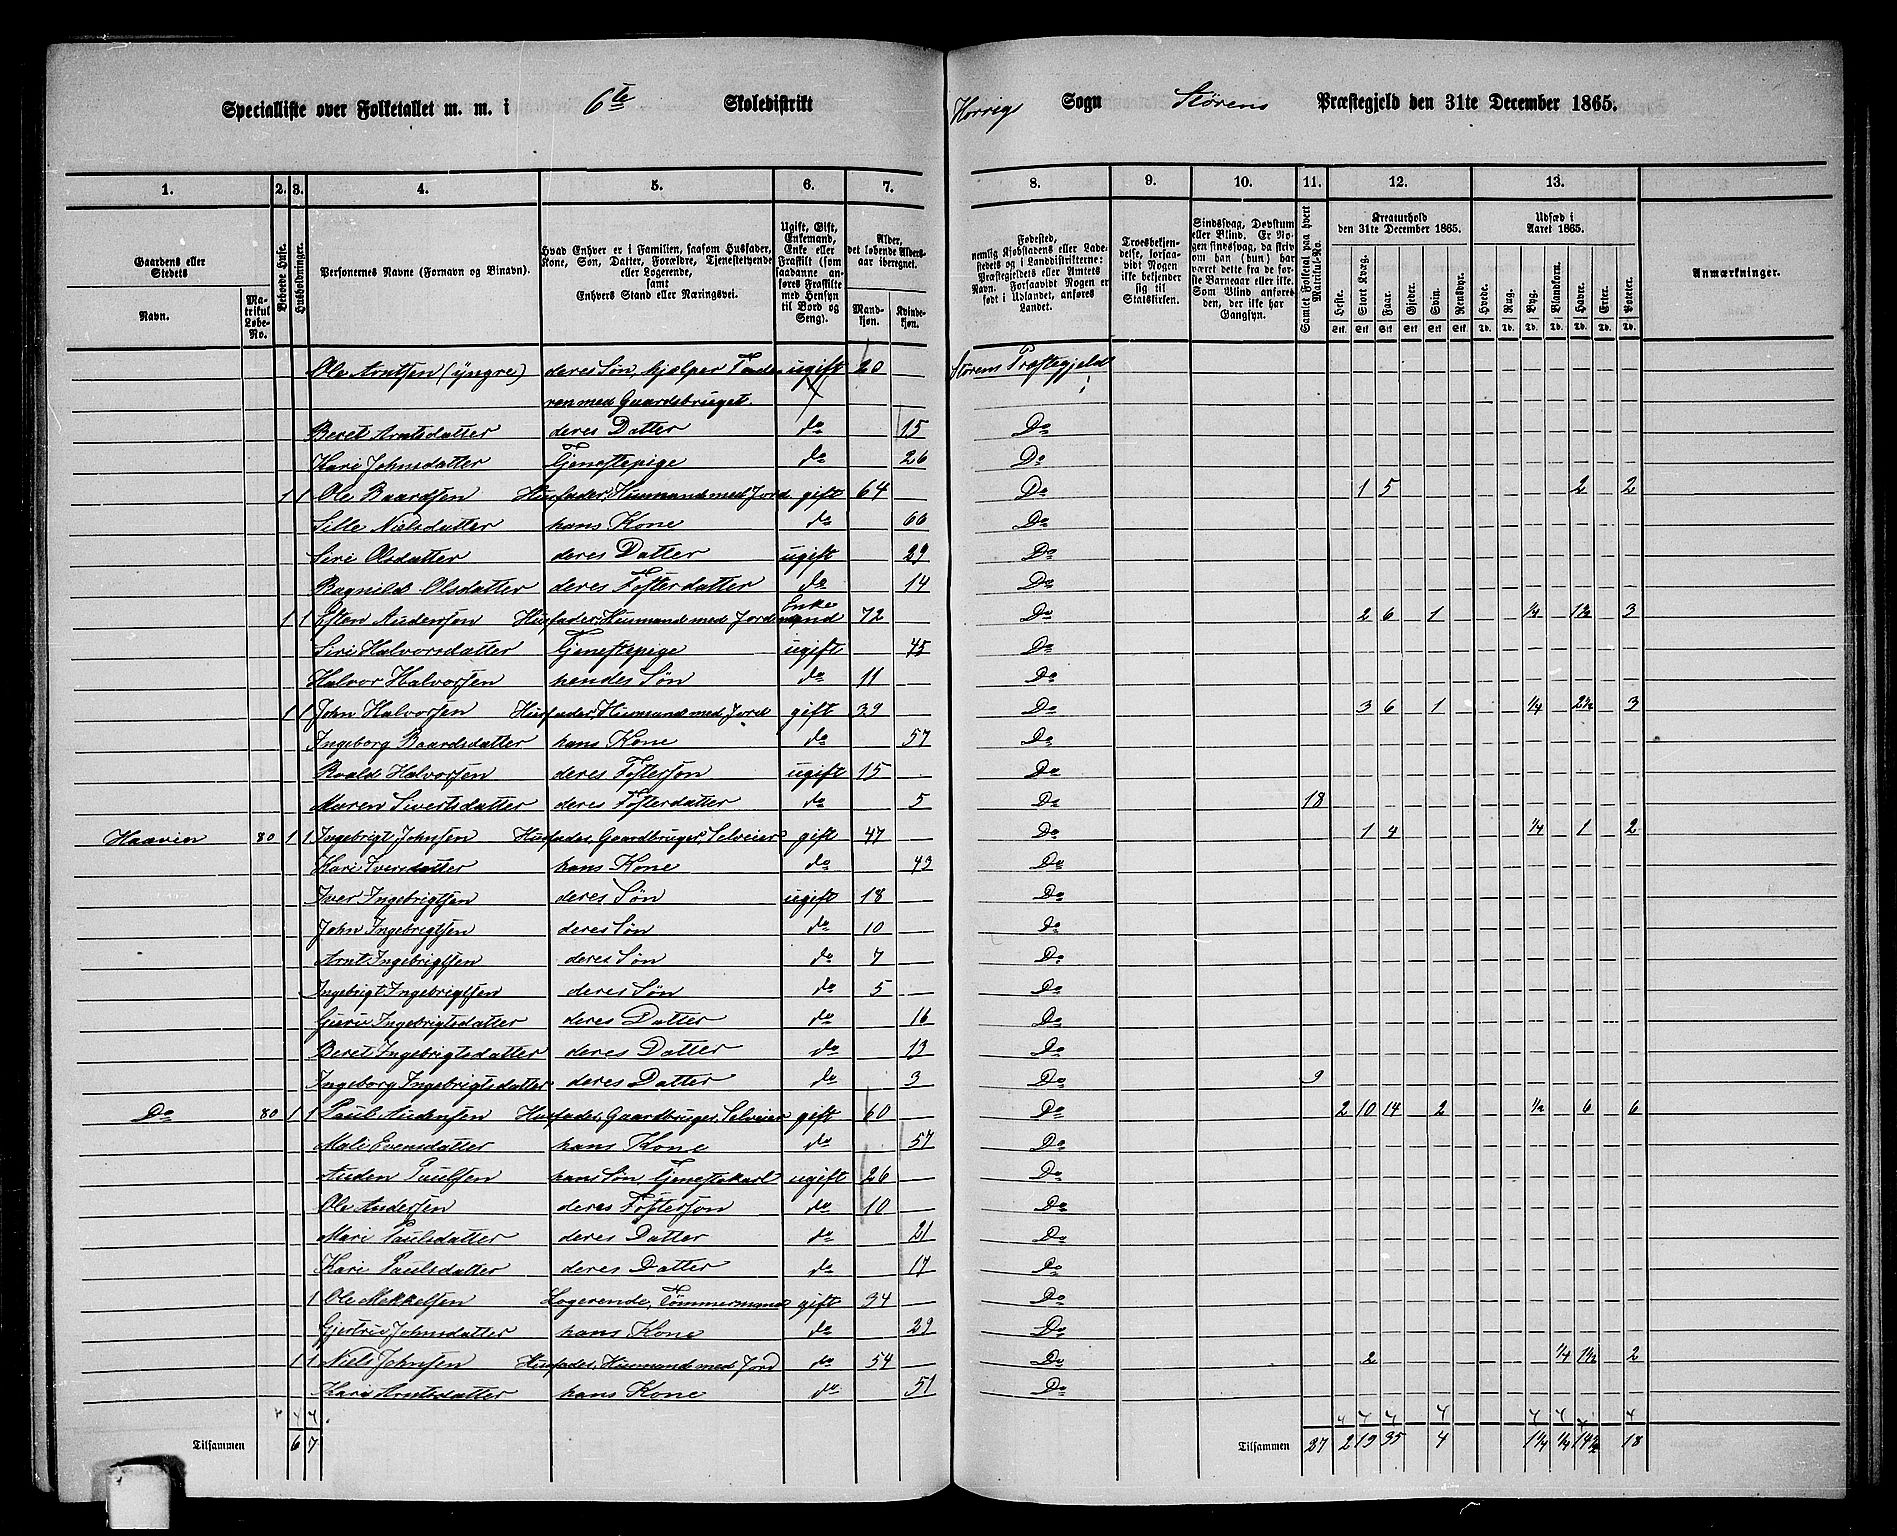 Specialliste over Folketallet m. m. i 6te Skoledistrikt Horrig Sogn Størens Præstegjeld den 31te December 1865.
1. 2. 3. 4. 5. 6. 7. 8. 9. 10. 11. 12. 13.
Gaardens eller Stedets
Navn.
Matrikul Løbe-No.
Beboede Huse.
Husholdninger.
Personernes Navne (Fornavn og Binavn).
Hvad Enhver er i Familien, saasom Husfader, Kone, Søn, Datter, Forældre, Tjenestetyende eller Logerende, samt Enhvers Stand eller Næringsvei.
Ugift, Gift, Enkemand, Enke eller Fraskilt (som saadanne anføres Fraskilte med Hensyn til Bord og Seng).
Alder, det løbende Aldersaar iberegnet.
Mandkjøn.
Kvindekjøn.
Fødested, nemlig Kjøbstadens eller Ladestedets og i Landdistrikterne: Præstegjeldets eller Amtets Navn. Forsaavidt Nogen er født i Udlandet, anføres Landet.
Troesbekjendelse, forsaavidt Nogen ikke bekjender sig til Statskirken.
Sindssvag, Døvstum eller Blind. Er Nogen sindssvag, da skrives om han (hun) har været dette fra de første Barneaar eller ikke. Som Blind anføres den, der ikke har Gangsyn.
Samlet Folketal paa hvert Matrikul-No.
Kreaturhold den 31te December 1865.
Heste. Stort Kvæg. Faar. Gjeder. Svin. Rensdyr.
Udsæd i Aaret 1865.
Hvede. Rug. Byg. Blandkorn. Havre. Erter. Poteter.
Anmærkninger.
Ole Arntsen (yngre) deres Søn, hjælper Fade- ugift 20 Størens Præstegjeld
ren med Gaardsbruget.
Beret Arntsdatter deres Datter do 15 Do
Kari Johnsdatter Tjenestepige do 26 Do
1 1 Ole Baardsen Husfader, Husmand med Jord gift 64 Do 1 5 2 2
Sille Nielsdatter hans Kone do 66 Do
Siri Olsdatter deres Datter ugift 29 Do
Ragnild Olsdatter deres Fosterdatter do 14 Do
1 1 Esten Audensen Husfader, Husmand med Jord Enkemand 72 Do 2 6 1 1/4 1 1/2 3
Siri Halvorsdatter Tjenestepige ugift 45 Do
Halvor Halvorsen hendes Søn do 11 Do
1 1 John Halvorsen Husfader, Husmand med Jord gift 39 Do 3 6 1 1/4 2 1/2 3
Ingeborg Baardsdatter hans Kone do 57 Do
Roald Halvorsen deres Fostersøn ugift 15 Do
Maren Sivertsdatter deres Fosterdatter do 5 Do 18
Haavin 80 1 1 Ingebrigt Johnsen Husfader, Gaardbruger, Selveier gift 47 Do 1 4 1/4 1 2
Kari Iversdatter hans Kone do 43 Do
Iver Ingebrigtsen deres Søn ugift 18 Do
John Ingebrigtsen deres Søn do 10 Do
Arnt Ingebrigtsen deres Søn do 7 Do
Ingebrigt Ingebrigtsen deres Søn do 5 Do
Guru Ingebrigtsdatter deres Datter do 16 Do
Beret Ingebrigtsdatter deres Datter do 13 Do
Ingeborg Ingebrigtsdatter deres Datter do 3 Do 9
Do 80 1 1 Paul Audensen Husfader, Gaardbruger, Selveier gift 60 Do 2 10 14 2 1/2 6 6
Mali Evensdatter hans Kone do 57 Do
Auden Paulsen hans Søn, Tjenestekarl ugift 26 Do
Ole Andersen deres Fostersøn do 10 Do
Mari Paulsdatter deres Datter do 21 Do
Kari Paulsdatter deres Datter do 17 Do
1 Ole Mekkelsen Logerende, Tømmermand gift 34 Do
Gjertru Johnsdatter hans Kone do 29 Do
1 1 Niels Johnsen Husfader, Husmand med Jord do 54 Do 2 1/4 1 1/2 2
Kari Arntsdatter hans Kone do 51 Do
Tilsammen 6 7 Tilsammen 27 2 19 35 4 1 1/4 1/4 14 1/2 18